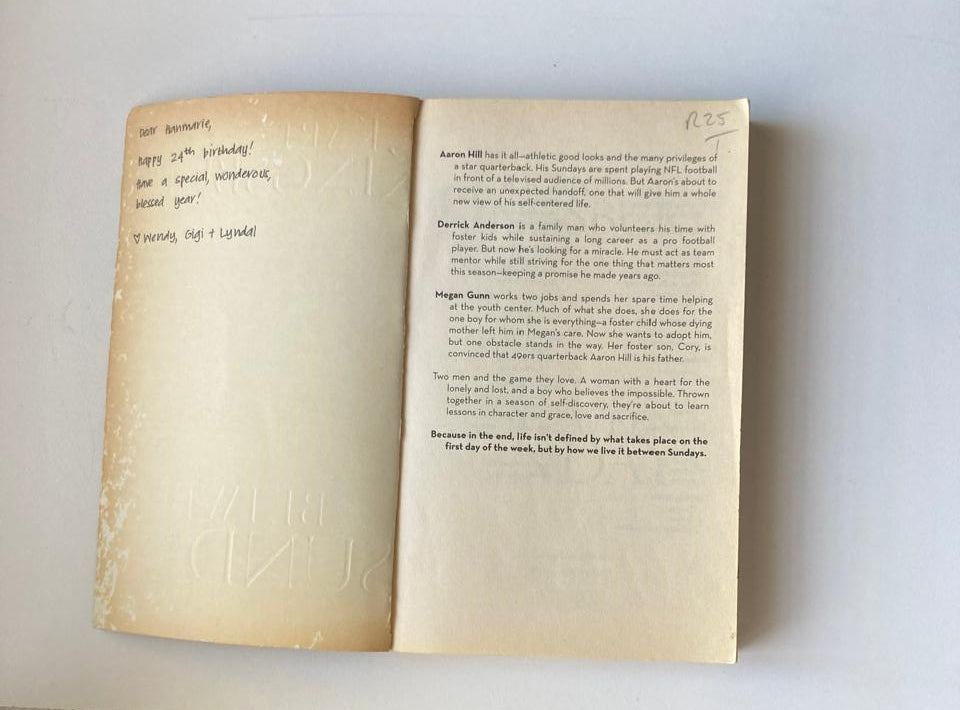 Dear Hanmarie,
Happy 24th birthday!
Have a special, wonderous,
blessed year!
♡ Wendy, Gigi + Lyndal
R25
Aaron Hill has it all—athletic good looks and the many privileges of
a star quarterback. His Sundays are spent playing NFL football
in front of a televised audience of millions. But Aaron's about to
receive an unexpected handoff, one that will give him a whole
new view of his self-centered life.
Derrick Anderson is a family man who volunteers his time with
foster kids while sustaining a long career as a pro football
player. But now he's looking for a miracle. He must act as team
mentor while still striving for the one thing that matters most
this season—keeping a promise he made years ago.
Megan Gunn works two jobs and spends her spare time helping
at the youth center. Much of what she does, she does for the
one boy for whom she is everything—a foster child whose dying
mother left him in Megan's care. Now she wants to adopt him,
but one obstacle stands in the way. Her foster son, Cory, is
convinced that 49ers quarterback Aaron Hill is his father.
Two men and the game they love. A woman with a heart for the
lonely and lost, and a boy who believes the impossible. Thrown
together in a season of self-discovery, they're about to learn
lessons in character and grace, love and sacrifice.
Because in the end, life isn't defined by what takes place on the
first day of the week, but by how we live it between Sundays.